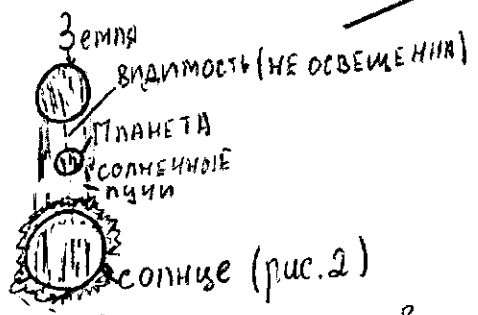 Земля
видимость (не освещения)
Планета
солнечные
лучи
солнце (рис.2)